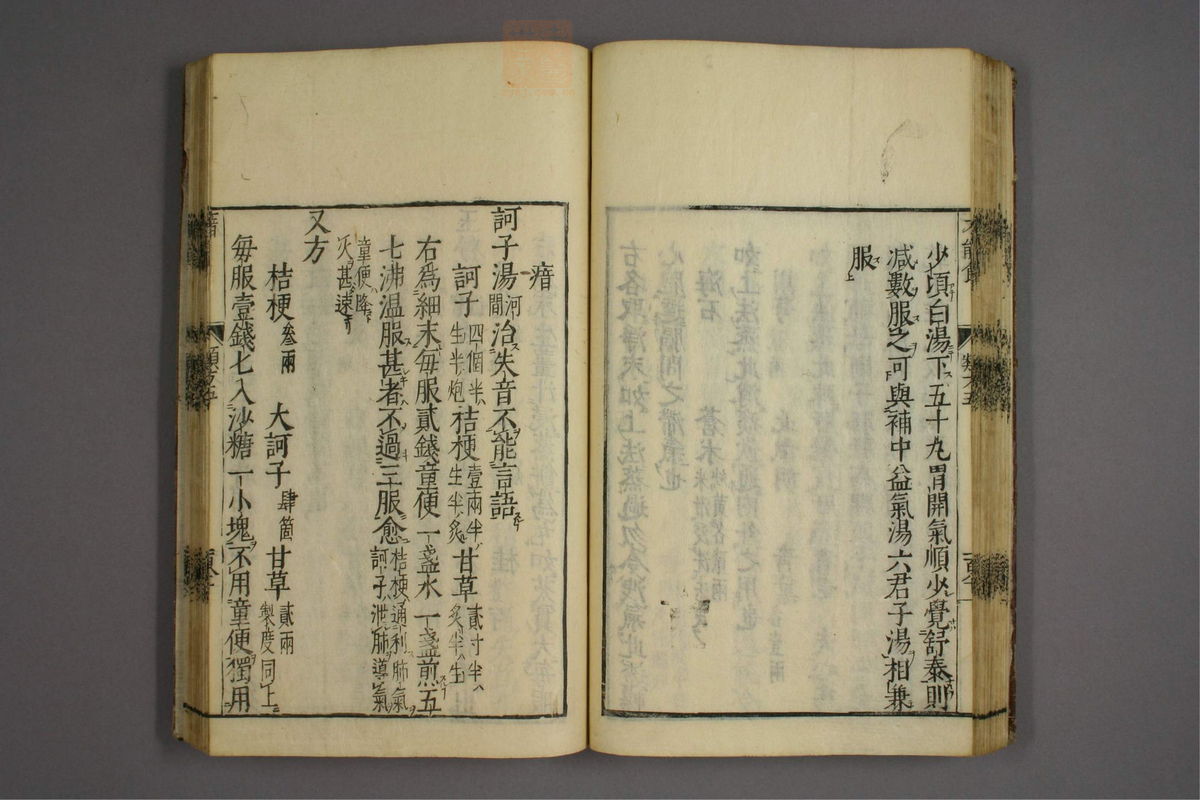 少頃白湯下五十丸胃開氣順少覺舒泰則
減數服之可與補中益氣湯六君子湯相兼
服
瘖
訶子湯河間治失音不能言語
訶子四個半生半炮桔梗壹兩半生半炙甘草貳寸半炙半生
右爲細末每服貳錢童便一盞水一盞煎五
七沸温服甚者不過三服愈桔梗通利肺氣訶子泄肺導氣
童便降火甚速
又方
桔梗叄兩 大訶子肆箇甘草貳兩製度同上
每服壹錢七入沙糖一小塊不用童便獨用